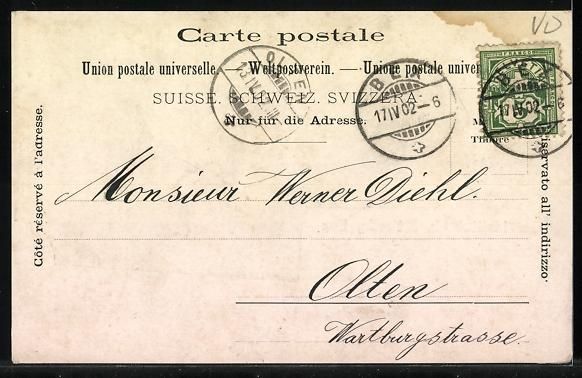 VD
Carte postale
Union postale universelle. — Weltpostverein. — Unione postale univer
SUISSE. SCHWEIZ. SVIZZERA.
Nur für die Adresse.
BEX
17.IV.02–6
FRANCO
BEX
17.IV.02–6
OLTEN
Timbre
Côté réservé à l'adresse.
riservato all' indirizzo
Monsieur Werner Diehl.
Olten
Wartburgstrasse.